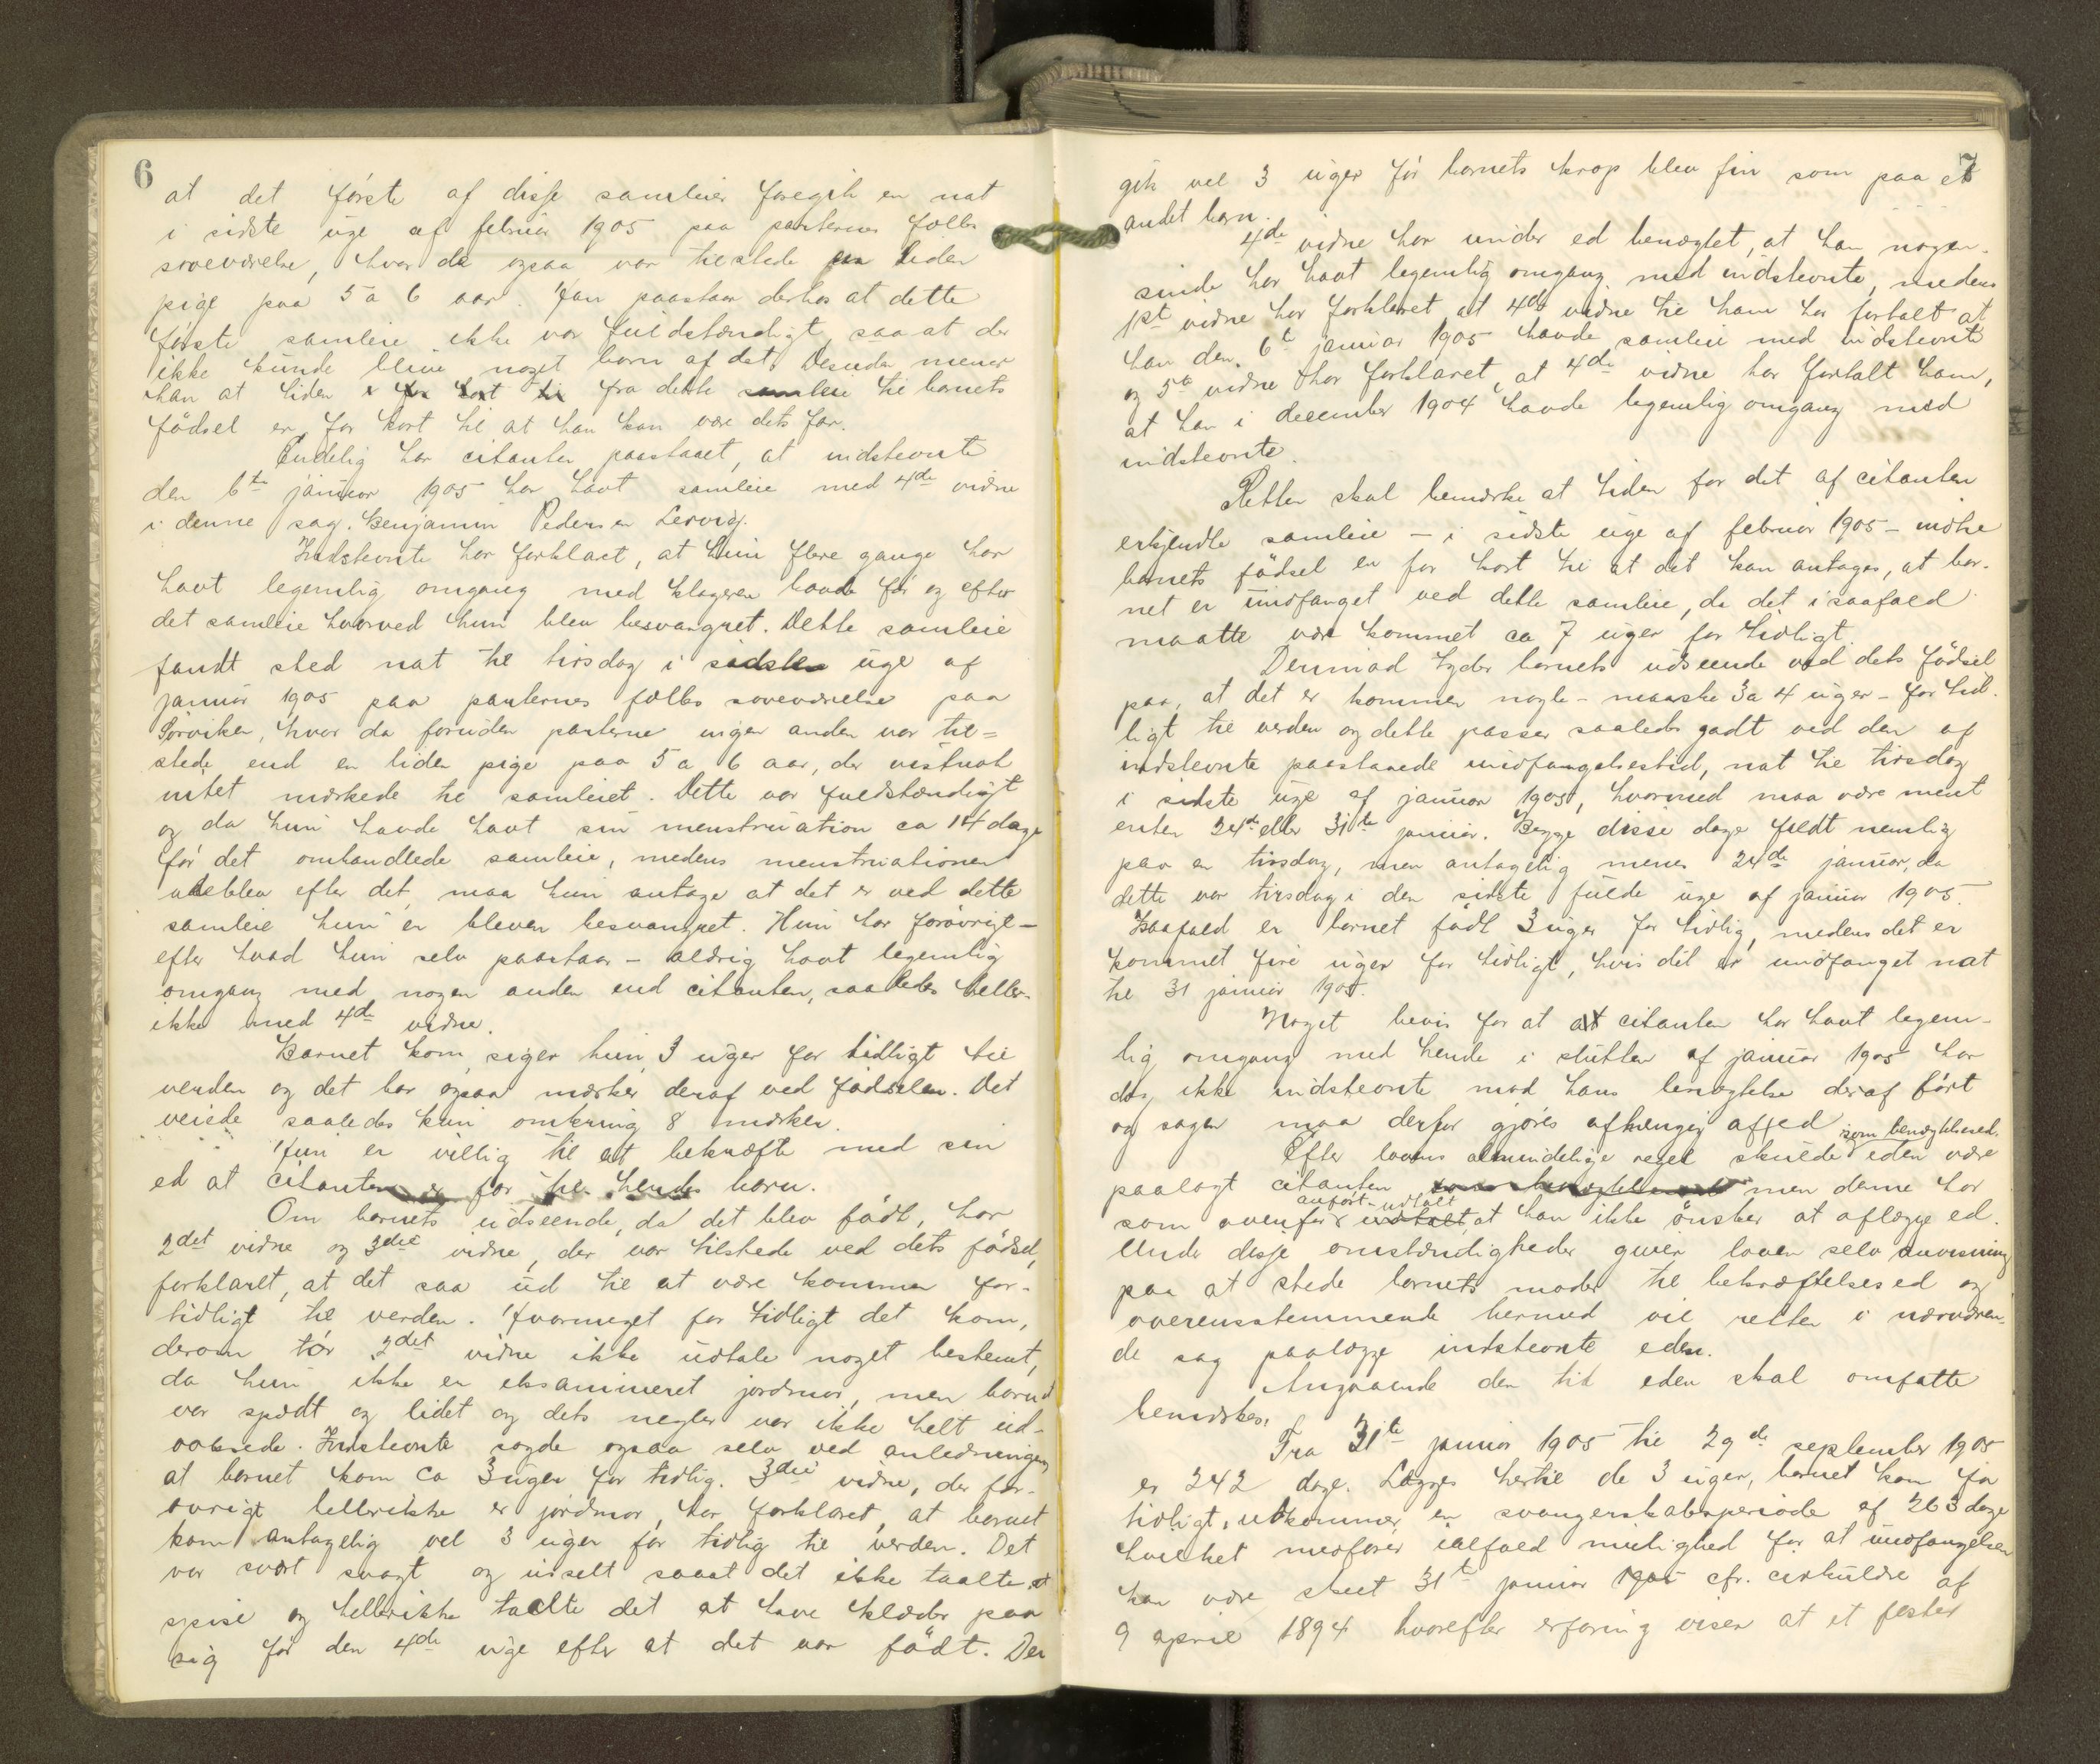 6
at det første af disse samleier foregik en nat
i sidste uge af februar 1905 paa parternes fælles
soveværelse, hvor da ogsaa var tilstede en liden
pige paa 5 a 6 aar. Han paastaar derhos at dette
første samleie ikke var fuldstændigt, saa at der
ikke kunde blive noget barn af det. Desuden mener
han at tiden fra dette samleie til barnets
fødsel er for kort til at han kan være dets far.
Endelig har citanten paastaaet, at indstevnte
den 6te januar 1905 har havt samleie med 4de vidne
i denne sag. Benjamin Pedersen Lervig.
Indstevnte har forklaret, at hun flere gange har
havt legemlig omgang med klageren baade før og efter
det samleie hvorved hun blev besvangret. Dette samleie
fandt sted nat til tirsdag i sidste uge af
januar 1905 paa parternes fælles soveværelse paa
Sørviken, hvor da foruden parterne ingen anden var til=
stede end en liden pige paa 5 a 6 aar, der vistnok
intet mærkede til samleiet. Dette var fuldstændigt
og da hun havde havt sin menstruation ca 14 dage
før det omhandlede samleie, medens menstruationen
udeblev efter det, maa hun antage at det er ved dette
samleie hun er bleven besvangret. Hun har forøvrigt –
efter hvad hun selv paastaar – aldrig havt legemlig
omgang med nogen anden end citanten, saaledes heller-
ikke med 4de vidne.
Barnet kom, siger hun, 3 uger for tidligt til
verden og det bar ogsaa mærker deraf ved fødselen. Det
veiede saaledes kun omkring 8 mærker.
Hun er villig til at bekræfte med sin
ed at citanten er far til hendes barn.
Om barnets udseende, da det blev født, har
2det vidne og 3die vidne, der var tilstede ved dets fødsel,
forklaret, at det saa ud til at være kommen for-
tidligt til verden. Hvormeget for tidligt det kom,
derom tør 2det vidne ikke udtale noget bestemt,
da hun ikke er eksamineret jordmor, men barnet
var spædt og lidet og dets negler var ikke helt ud-
voksede. Indstevnte sagde ogsaa selv ved anledningen
at barnet kom ca 3 uger for tidlig. 3die vidne, der for-
øvrigt hellerikke er jordmor, har forklaret, at barnet
kom antagelig vel 3 uger for tidlig til verden. Det
var svært svagt og usselt saaat det ikke taalte at
spise og hellerikke taalte det at have klæder paa
sig før den 4de uge efter at det var født. Der
7
gik vel 3 uger før barnets krop blev fin som paa et
andet barn.
4de vidne har under ed benægtet, at han nogen-
sinde har havt legemlig omgang med indstevnte, medens
1ste vidne har forklaret at 4de vidne til ham har fortalt at
han den 6te januar 1905 havde samleie med indstevnte
og 5te vidne har forklaret, at 4de vidne har fortalt ham,
at han i december 1904 havde legemlig omgang med
indstevnte.
Retten skal bemærke at tiden for det af citanten
erkjendte samleie – i sidste uge af februar 1905 – indtil
barnets fødsel er for kort til at det kan antages, at bar-
net er undfanget ved dette samleie, da det isaafald
maatte være kommet ca 7 uger for tidligt.
Derimod tyder barnets udseende ved dets fødsel
paa, at det er kommen nogle – maaske 3 a 4 uger – for tid-
ligt til verden og dette passer saaledes godt ved den af
indstevnte paastaaede undfangelsestid, nat til tirsdag
i sidste uge af januar 1905, hvormed maa være ment
enten 24de eller 31te januar. Begge disse dage faldt nemlig
paa en tirsdag, men antagelig menes 24de januar, da
dette var tirsdag i den sidste fulde uge af januar 1905.
Isaafald er barnet født 3 uger for tidlig, medens det er
kommet fire uger for tidligt, hvis det er undfanget nat
til 31 januar 1905.
Noget bevis for at citanten har havt legem-
lig omgang med hende i slutten af januar 1905 har
dog ikke indstevnte mod hans benægtelse deraf ført
og sagen maa derfor gjøres afhængig af ed
Efter lovens almindelige regel skulde eden som benægtelsesed være
paalagt citanten men denne har
som ovenfor anført udtalt, at han ikke ønsker at aflægge ed.
Under disse omstændigheder giver loven selv anvisning
paa at stede barnets moder til bekræftelsesed og
overensstemmende hermed vil retten i nærværen-
de sag paalægge indstevnte eden.
Angaaende den tid eden skal omfatte
bemærkes:
Fra 31te januar 1905 til 29de september 1905
er 242 dage. Lægges hertil de 3 uger, barnet kom for
tidligt, udkommer en svangerskabsperiode af 263 dage
hvilket medfører ialfald mulighed for at undfangelsen
kan være skeet 31te januar 1905 cfr. cirkulære af
9 april 1894 hvorefter erfaring viser at et foster